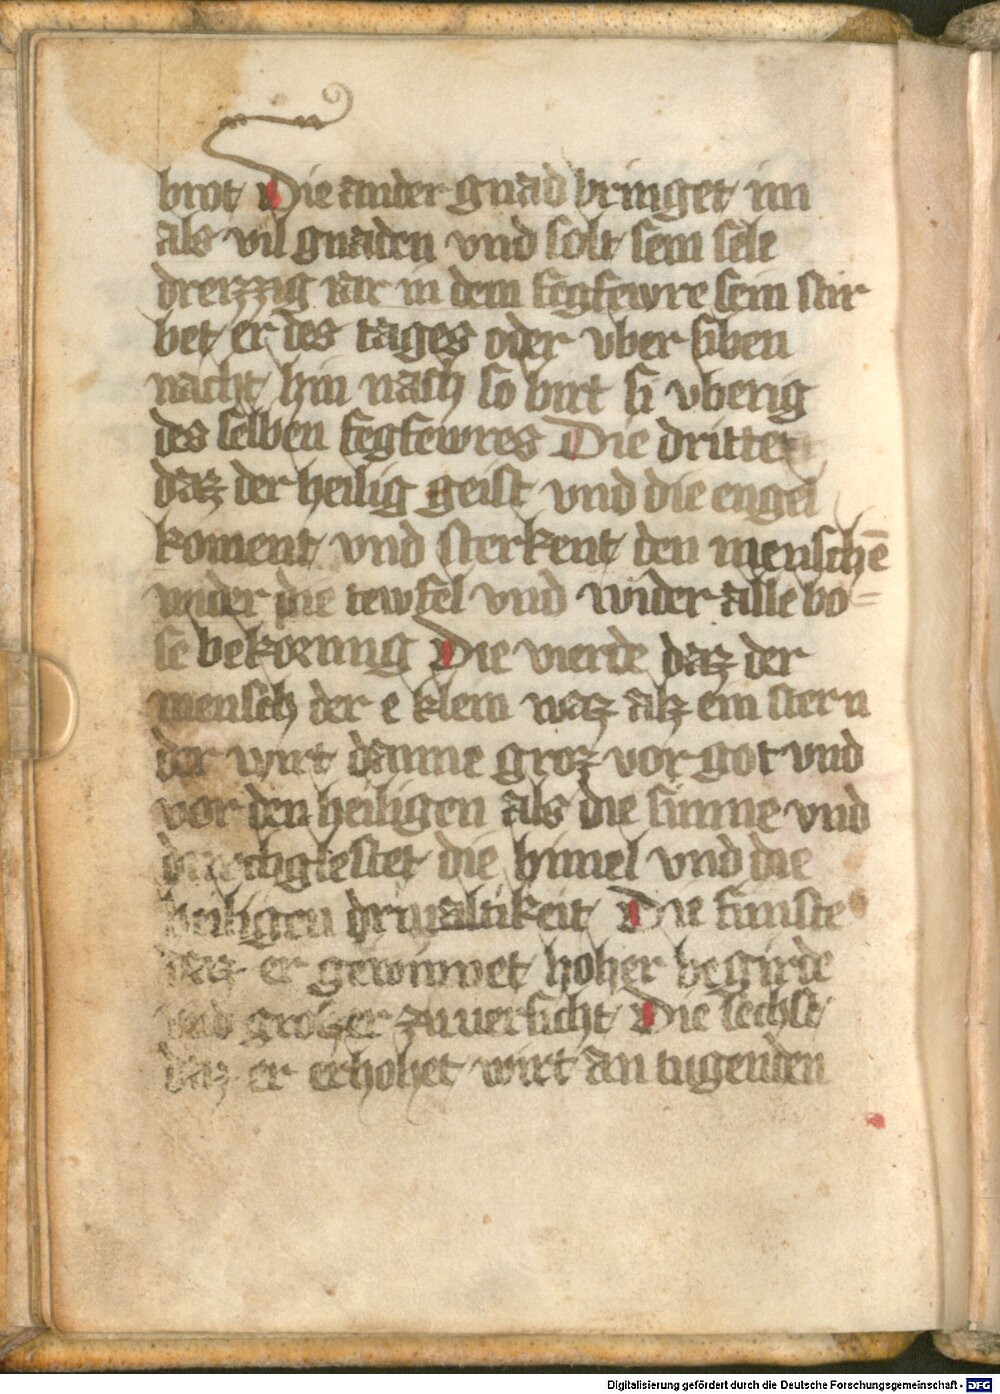 brot Die ander gnad bringet im
als vil gnaden vnd solt sein sele
dreizzig iar in dem fegfewre sein stir
bet er des tages oder vber siben
nacht hin nach so birt si vberig
des selben fegfewres Die dritte
daz der heilig geist vnd die engel
koment vnd sterkent den menschē
wider die tewfel vnd wider alle bo=
se bekorung Die vierde daz der
mensch der e klein waz alz ein stern
der wirt danne groz vor got vnd
vor den heiligen als die sunne vnd
durchglestet die himel vnd die
heiligen driualtikeit Die funfte
daz er gewinnet hoher begirde
vnd grozzer zuuersicht Die sechst
daz er erhohet wirt an tugenden
Digitalisierung gefördert durch die Deutsche Forschungsgemeinschaft - DFG